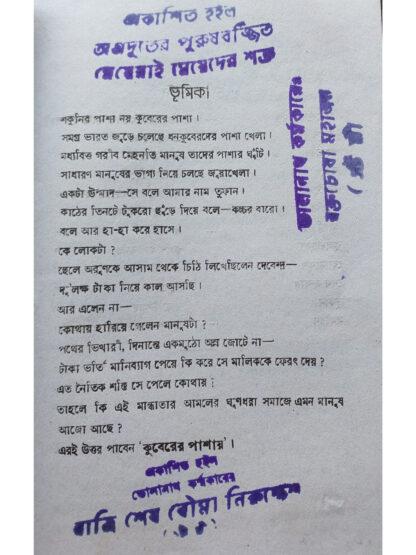 প্রকাশিত হইল
অগ্রদূতের পুরুষবর্জিত
মেয়েরাই মেয়েদের শত্রু
ভূমিকা
শকুনির পাশা নয় কুবেরের পাশা।
সমগ্র ভারত জুড়ে চলেছে ধনকুবেরদের পাশা খেলা।
মধ্যবিত্ত গরীব মেহনতি মানুষ তাদের পাশার ঘুঁটি।
সাধারণ মানুষের ভাগ্য নিয়ে চলছে জুয়াখেলা।
একটা উন্মাদ—সে বলে আমার নাম তুফান।
কাঠের তিনটে টুকরো ছুঁড়ে দিয়ে বলে—কচ্চর বারো।
বলে আর হা-হা করে হাসে।
কে লোকটা ?
ছেলে অরুণকে আসাম থেকে চিঠি লিখেছিলেন দেবেন্দ্র—
দু'লক্ষ টাকা নিয়ে কাল আসছি।
আর এলেন না—
কোথায় হারিয়ে গেলেন মানুষটা ?
পথের ভিখারী, দিনান্তে একমুঠো অন্ন জোটে না—
টাকা ভর্তি মানিব্যাগ পেয়ে কি করে সে মালিককে ফেরৎ দেয় ?
এত নৈতিক শক্তি সে পেলে কোথায় ?
তাহলে কি এই মান্ধাতার আমলের ঘুণধরা সমাজে এমন মানুষ
আজো আছে ?
এরই উত্তর পাবেন 'কুবেরের পাশায়'।
ভোলানাথ কর্মকারের
প্রকাশিত হইল
ভোলানাথ কর্মকারের
রাত্রি শেষ